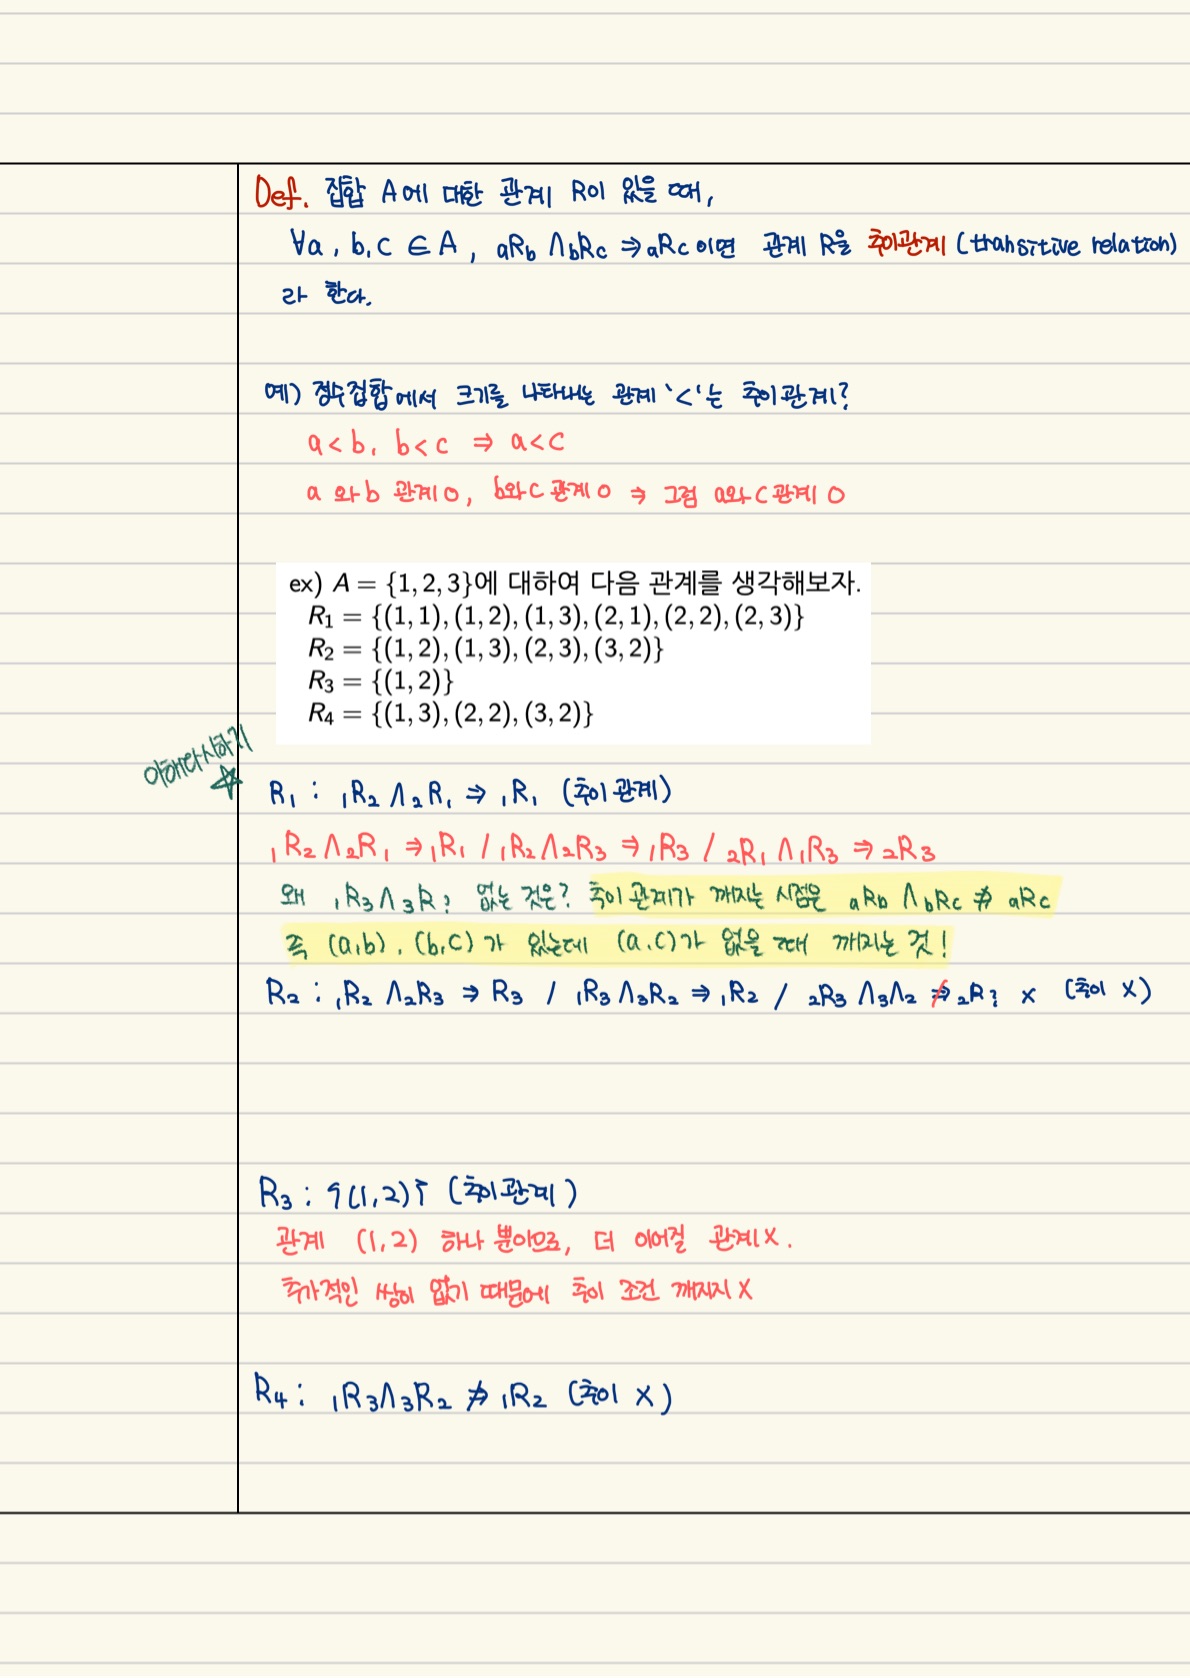 Def. 집합 A에 대한 관계 R이 있을 때,
∀a, b, c ∈ A, aRb ∧ bRc ⇒ aRc 이면 관계 R을 추이관계 (transitive relation)
라 한다.
예) 정수집합에서 크기를 나타내는 관계 '<'는 추이관계?
a < b, b < c ⇒ a < c
a 와 b 관계 O, b와 c 관계 O ⇒ 그럼 a와 c 관계 O
ex) A = {1, 2, 3}에 대하여 다음 관계를 생각해보자.
R₁ = {(1, 1), (1, 2), (1, 3), (2, 1), (2, 2), (2, 3)}
R₂ = {(1, 2), (1, 3), (2, 3), (3, 2)}
R₃ = {(1, 2)}
R₄ = {(1, 3), (2, 2), (3, 2)}
이해다시하기
☆
R₁ : ₁R₂ ∧ ₂R₁ ⇒ ₁R₁ (추이관계)
₁R₂ ∧ ₂R₁ ⇒ ₁R₁ / ₁R₂ ∧ ₂R₃ ⇒ ₁R₃ / ₂R₁ ∧ ₁R₃ ⇒ ₂R₃
왜 ₁R₃ ∧ ₃R? 없는 것은? 추이관계가 깨지는 시점은 aRb ∧ bRc ⇏ aRc
즉 (a,b), (b,c) 가 있는데 (a,c)가 없을 때 깨지는 것!
R₂ : ₁R₂ ∧ ₂R₃ ⇒ R₃ / ₁R₃ ∧ ₃R₂ ⇒ ₁R₂ / ₂R₃ ∧ ₃∧₂ ⇏ ₂R? × (추이 X)
R₃ : {(1,2)} (추이관계)
관계 (1,2) 하나 뿐이므로, 더 이어질 관계 X.
추가적인 쌍이 없기 때문에 추이 조건 깨지지 X
R₄ : ₁R₃ ∧ ₃R₂ ⇏ ₁R₂ (추이 X)